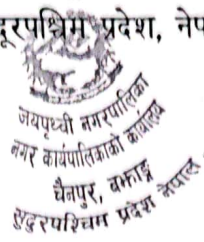 दूरपश्चिम प्रदेश, नेप
जयपृथ्वी नगरपालिका
नगर कार्यपालिकाको कार्यालय
चैनपुर, बझाङ
सुदूरपश्चिम प्रदेश नेपाल